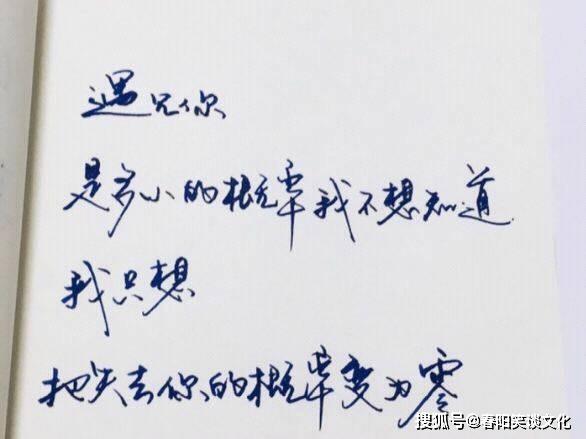 遇见你
是多小的概率我不想知道
我只想
把失去你的概率变为零
搜狐号@春阳笑谈文化